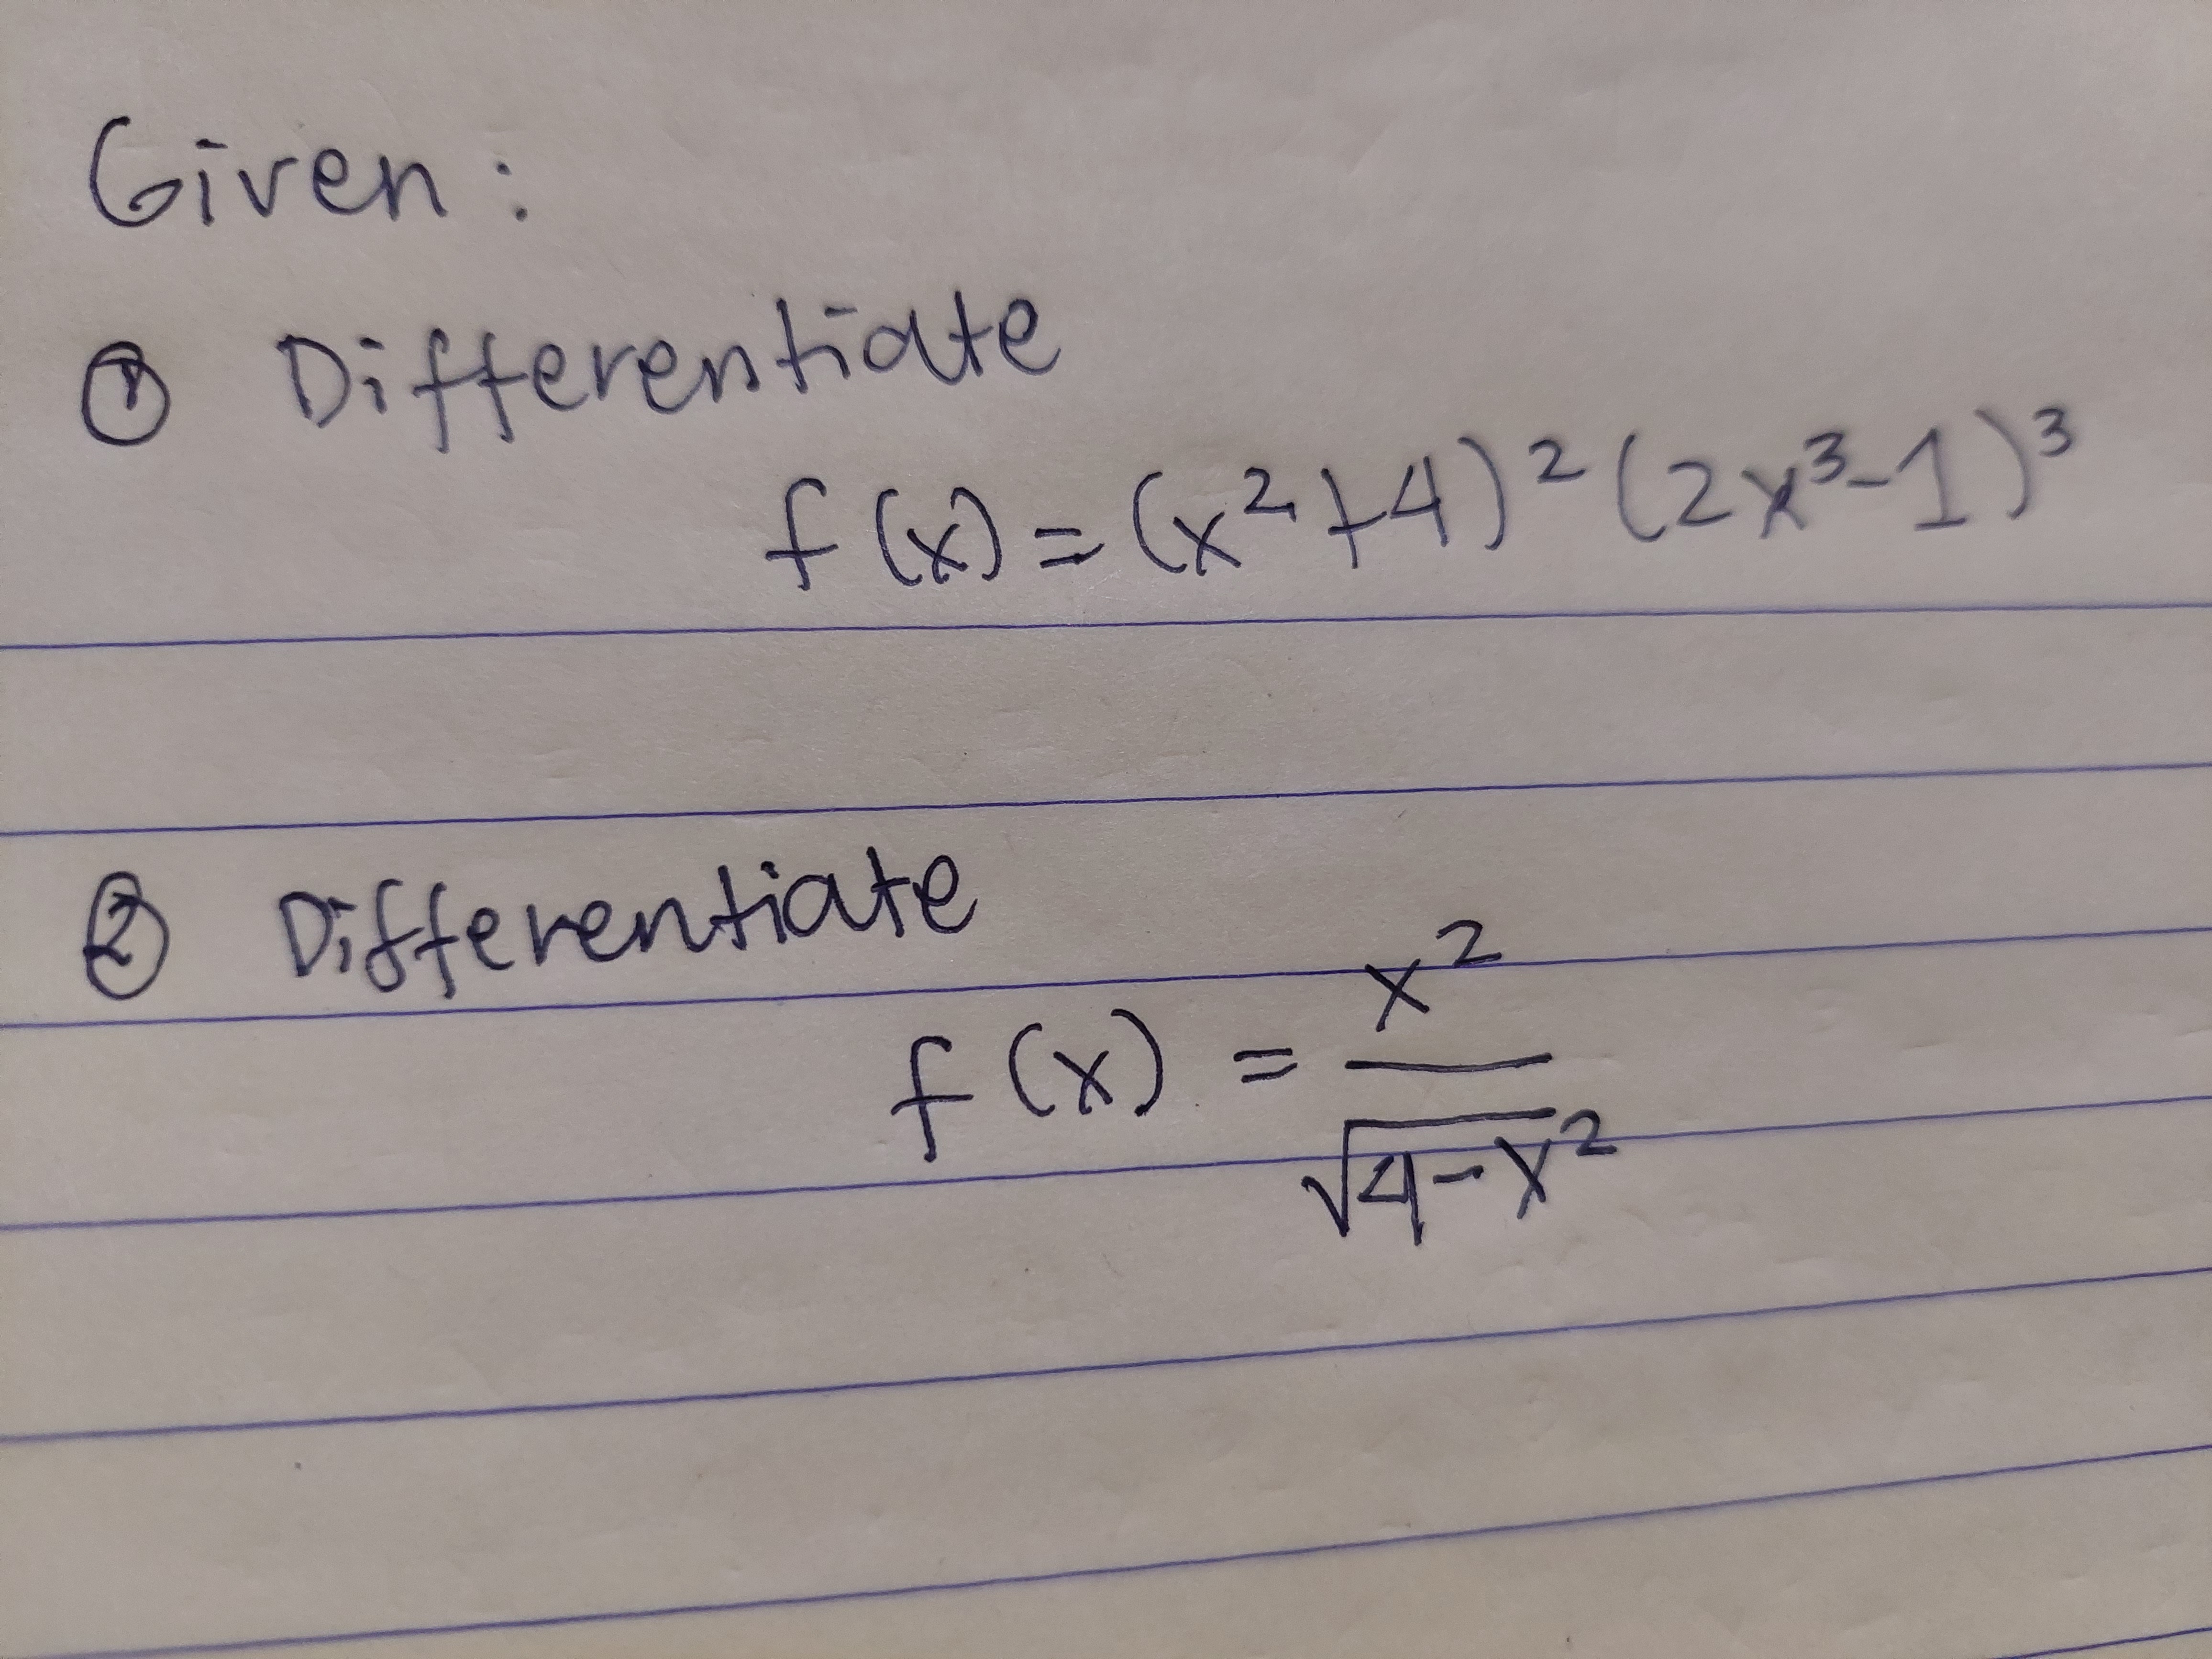 Given:
① Differentiate
f(x) = (x²+4)² (2x³-1)³
② Differentiate
f(x) = x² / √4-x²